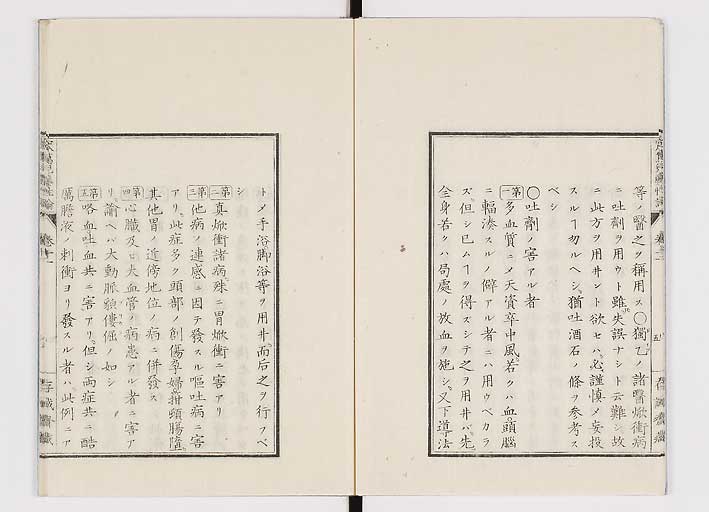 等ノ醫之ヲ稱用ス○獨乙ノ諸醫焮衝病
ニ吐劑ヲ用ウト雖失誤ナシト云難シ故
ニ此方ヲ用井ント欲セハ必謹愼メ妄投
スルヿ勿ルヘシ猶吐酒石ノ條ヲ參考ス
ベシ
○吐劑ノ害アル者
第一多血質ニメ天資卒中風若クハ血頭腦
ニ輻湊スルノ僻アル者ニハ用ウベカラ
ズ但シ已ムヿヲ得ズシテ之ヲ用井バ先
全身若クハ局處ノ放血ヲ施シ又下導法
存誠齋藏
トメ手浴脚浴等ヲ用井而后之ヲ行フベ
シ
第二真焮衝諸病殊ニ胃焮衝ニ害アリ
第三他病ノ連感ニ因テ發スル嘔吐病ニ害
アリ此症多ク頭部ノ創傷孕婦箝頓腸墮
其他胃ノ近傍地位ノ病ニ併發ス
第四心臟及ヒ大血管ノ病患アル者ニ害ア
リ諭ヘハ大動脈
ノ如シ
第五咯血吐血共ニ害アリ但シ兩症共ニ酷
厲膽液ノ刺衝ヨリ發スル者ハ此例ニア
存誠齋藏